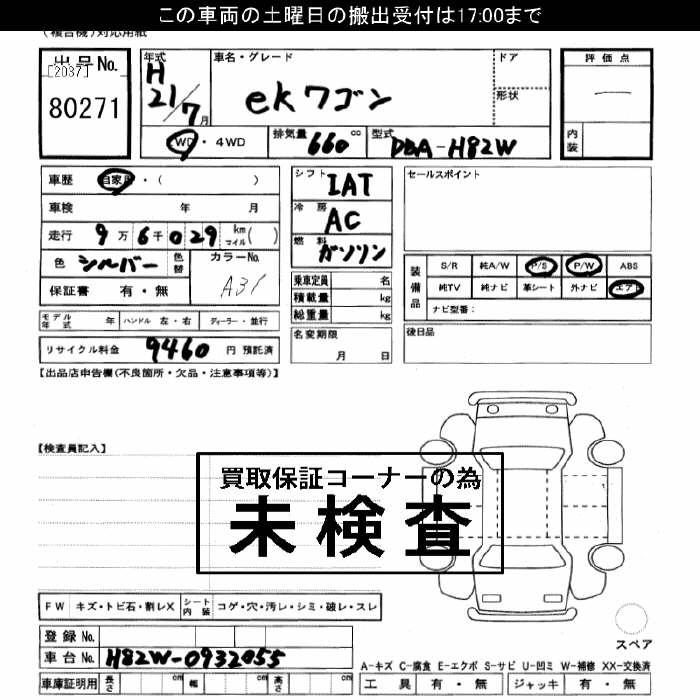 この車両の土曜日の搬出受付は17:00まで
(複合機)対応用紙
出品No.
[2037]
80271
年式
H
21/7月
車名・グレード
ekワゴン
ドア
形状
評価点
―
内装
WD・4WD
排気量 660 cc
型式 DBA-H82W
車歴 自家用・( )
車検 年 月
走行 9万6千029 km マイル( )
色 シルバー 色替
カラーNo. A31
保証書 有・無
シフト IAT
冷房 AC
燃料 ガソリン
乗車定員 名
積載量 kg
総重量 kg
セールスポイント
装備品
S/R 純A/W P/S P/W ABS
純TV 純ナビ 革シート 外ナビ エア
ナビ型番:
モデル年式 年 ハンドル 左・右 ディーラー・並行
リサイクル料金 9460 円 預託済
名変期限
月 日
後日品
【出品店申告欄(不良箇所・欠品・注意事項等)】
【検査員記入】
買取保証コーナーの為
未検査
FW キズ・トビ石・割レX シート内装 コゲ・穴・汚レ・シミ・破レ・スレ
登録No.
車台No. H82W-0932055
車庫証明用 長さ cm 幅 cm 高さ cm
スペア
A-キズ C-腐食 E-エクボ S-サビ U-凹ミ W-補修 XX-交換済
工具 有・無 ジャッキ 有・無